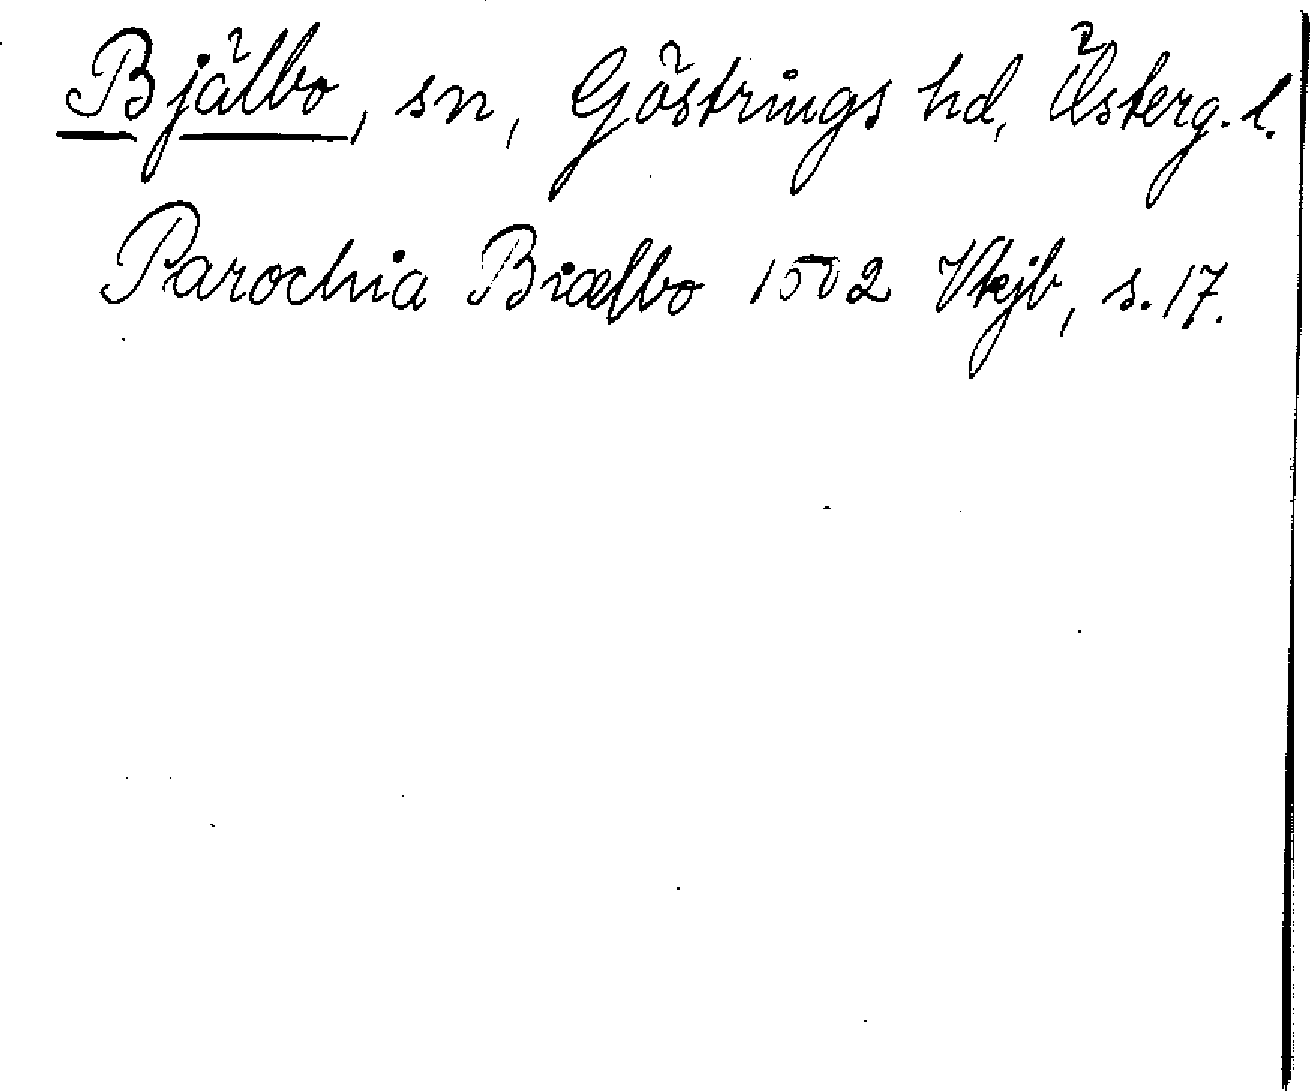 Bjälbo, sn, Göstrings hd, Österg. l.
Parochia Biælbo 1502 Vkjb, s. 17.